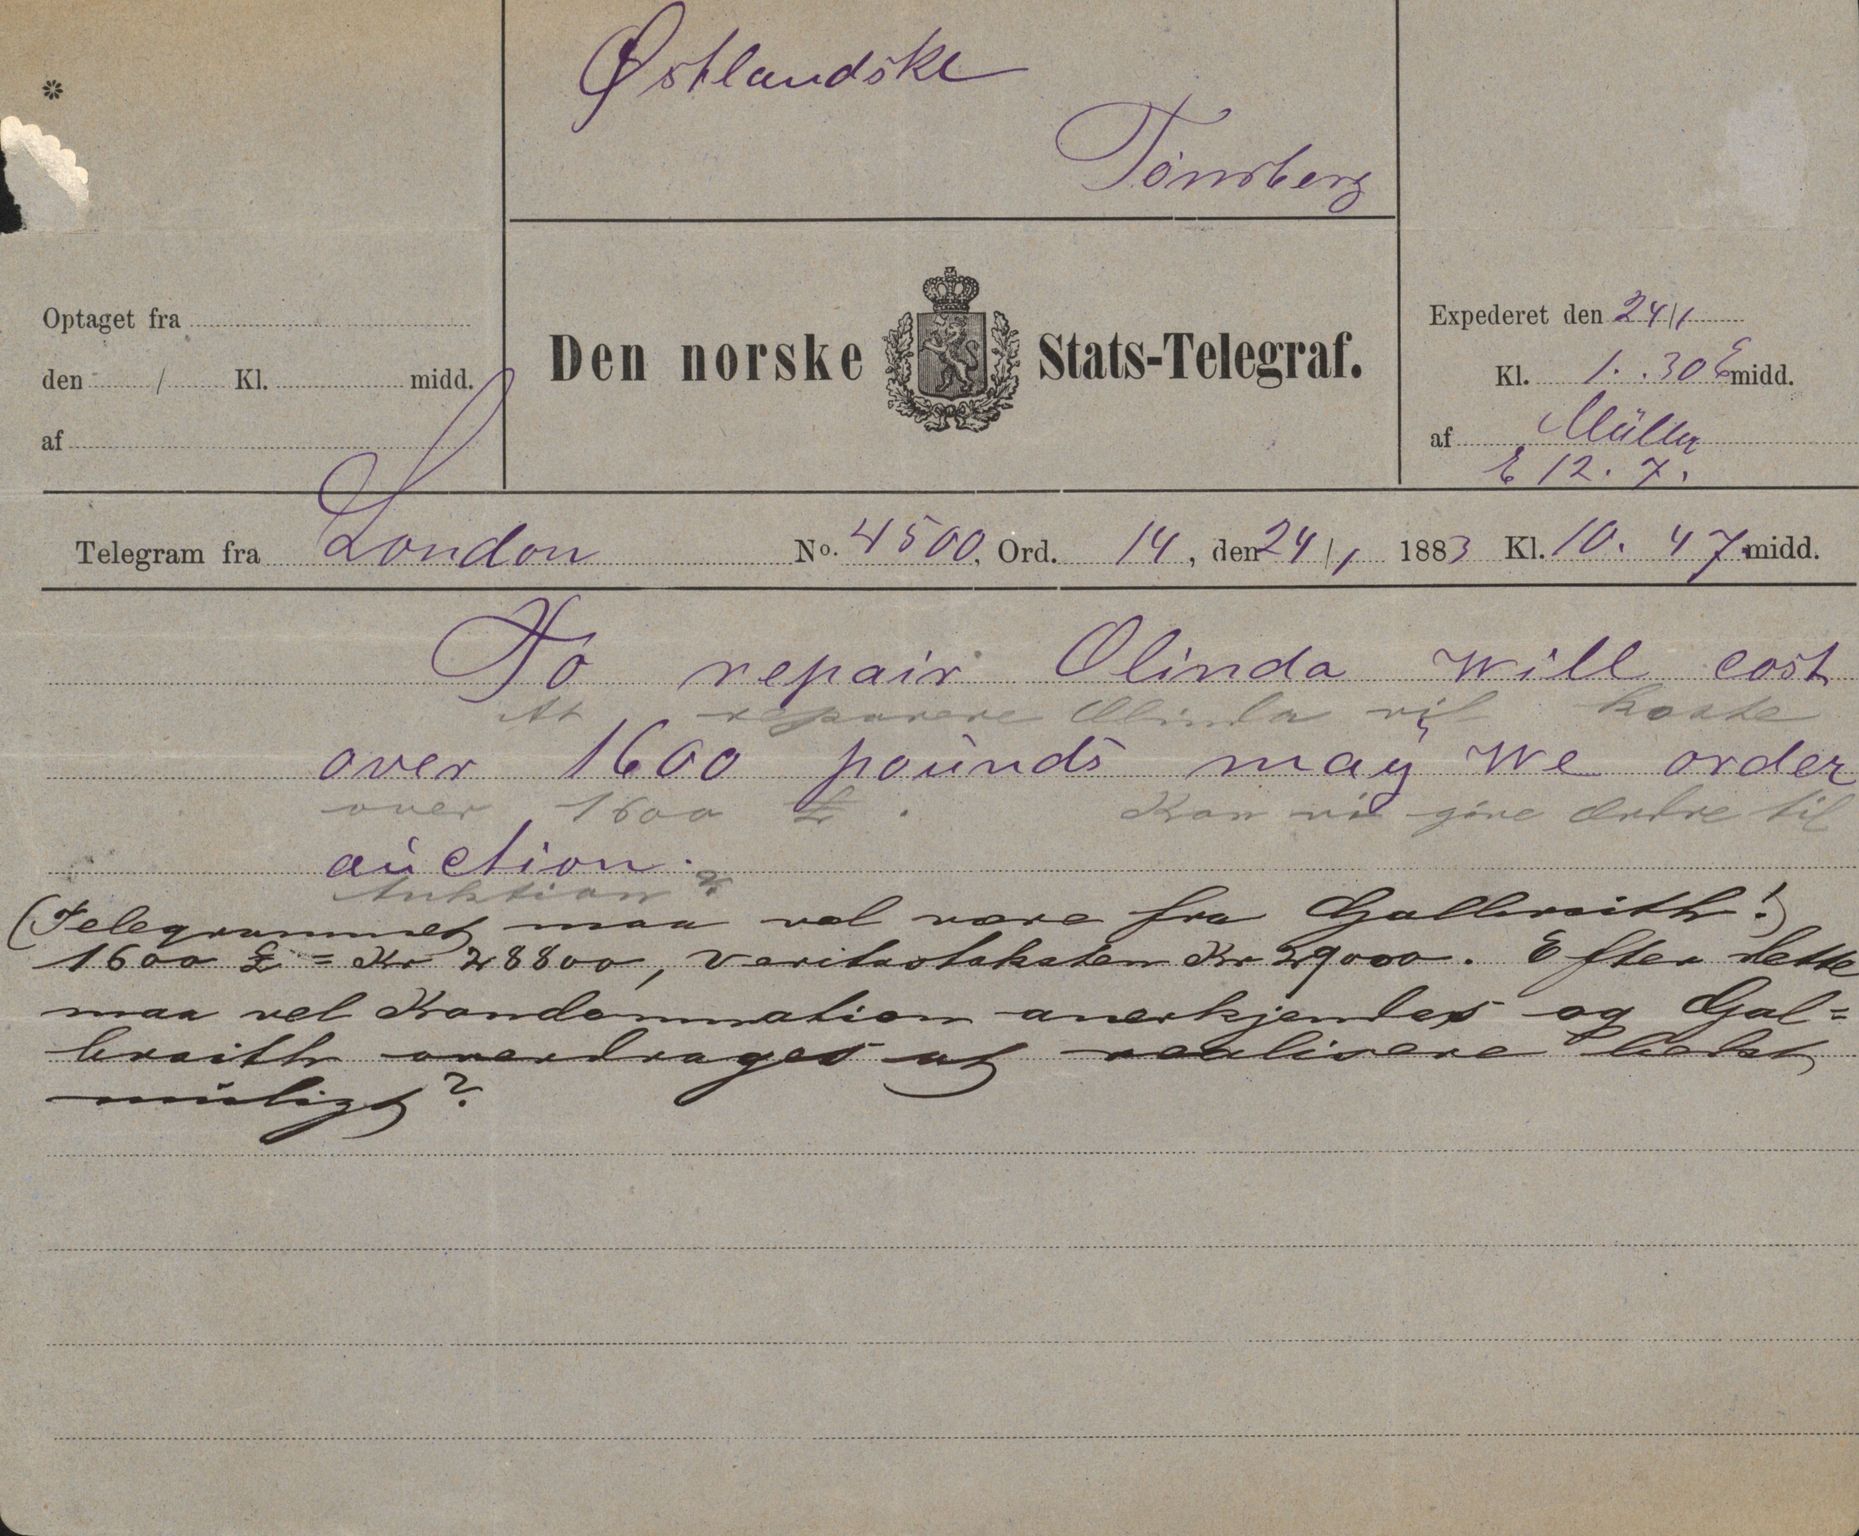 Østlandske
Tønsberg
Optaget fra
den / Kl. midd.
af
Den norske Stats-Telegraf.
Expederet den 24/1
Kl. 1.30 E midd.
af Müller
E 12.7.
Telegram fra London No. 4500, Ord. 14, den 24/1 1883 Kl. 10.47 midd.
To repair Olinda will cost
At reparere Olinda vil koste
over 1600 pounds may we order
over 1600 £. Kan vi give Ordre til
auction.
Auktion?
(Telegrammet maa vel være fra Galbraith!)
1600 £ = Kr 28800, Veritastaksten Kr 29000. Efter dette
maa vel Kondemnation anerkjendes og Gal=
braith overdrages at realisere bedst
muligt?